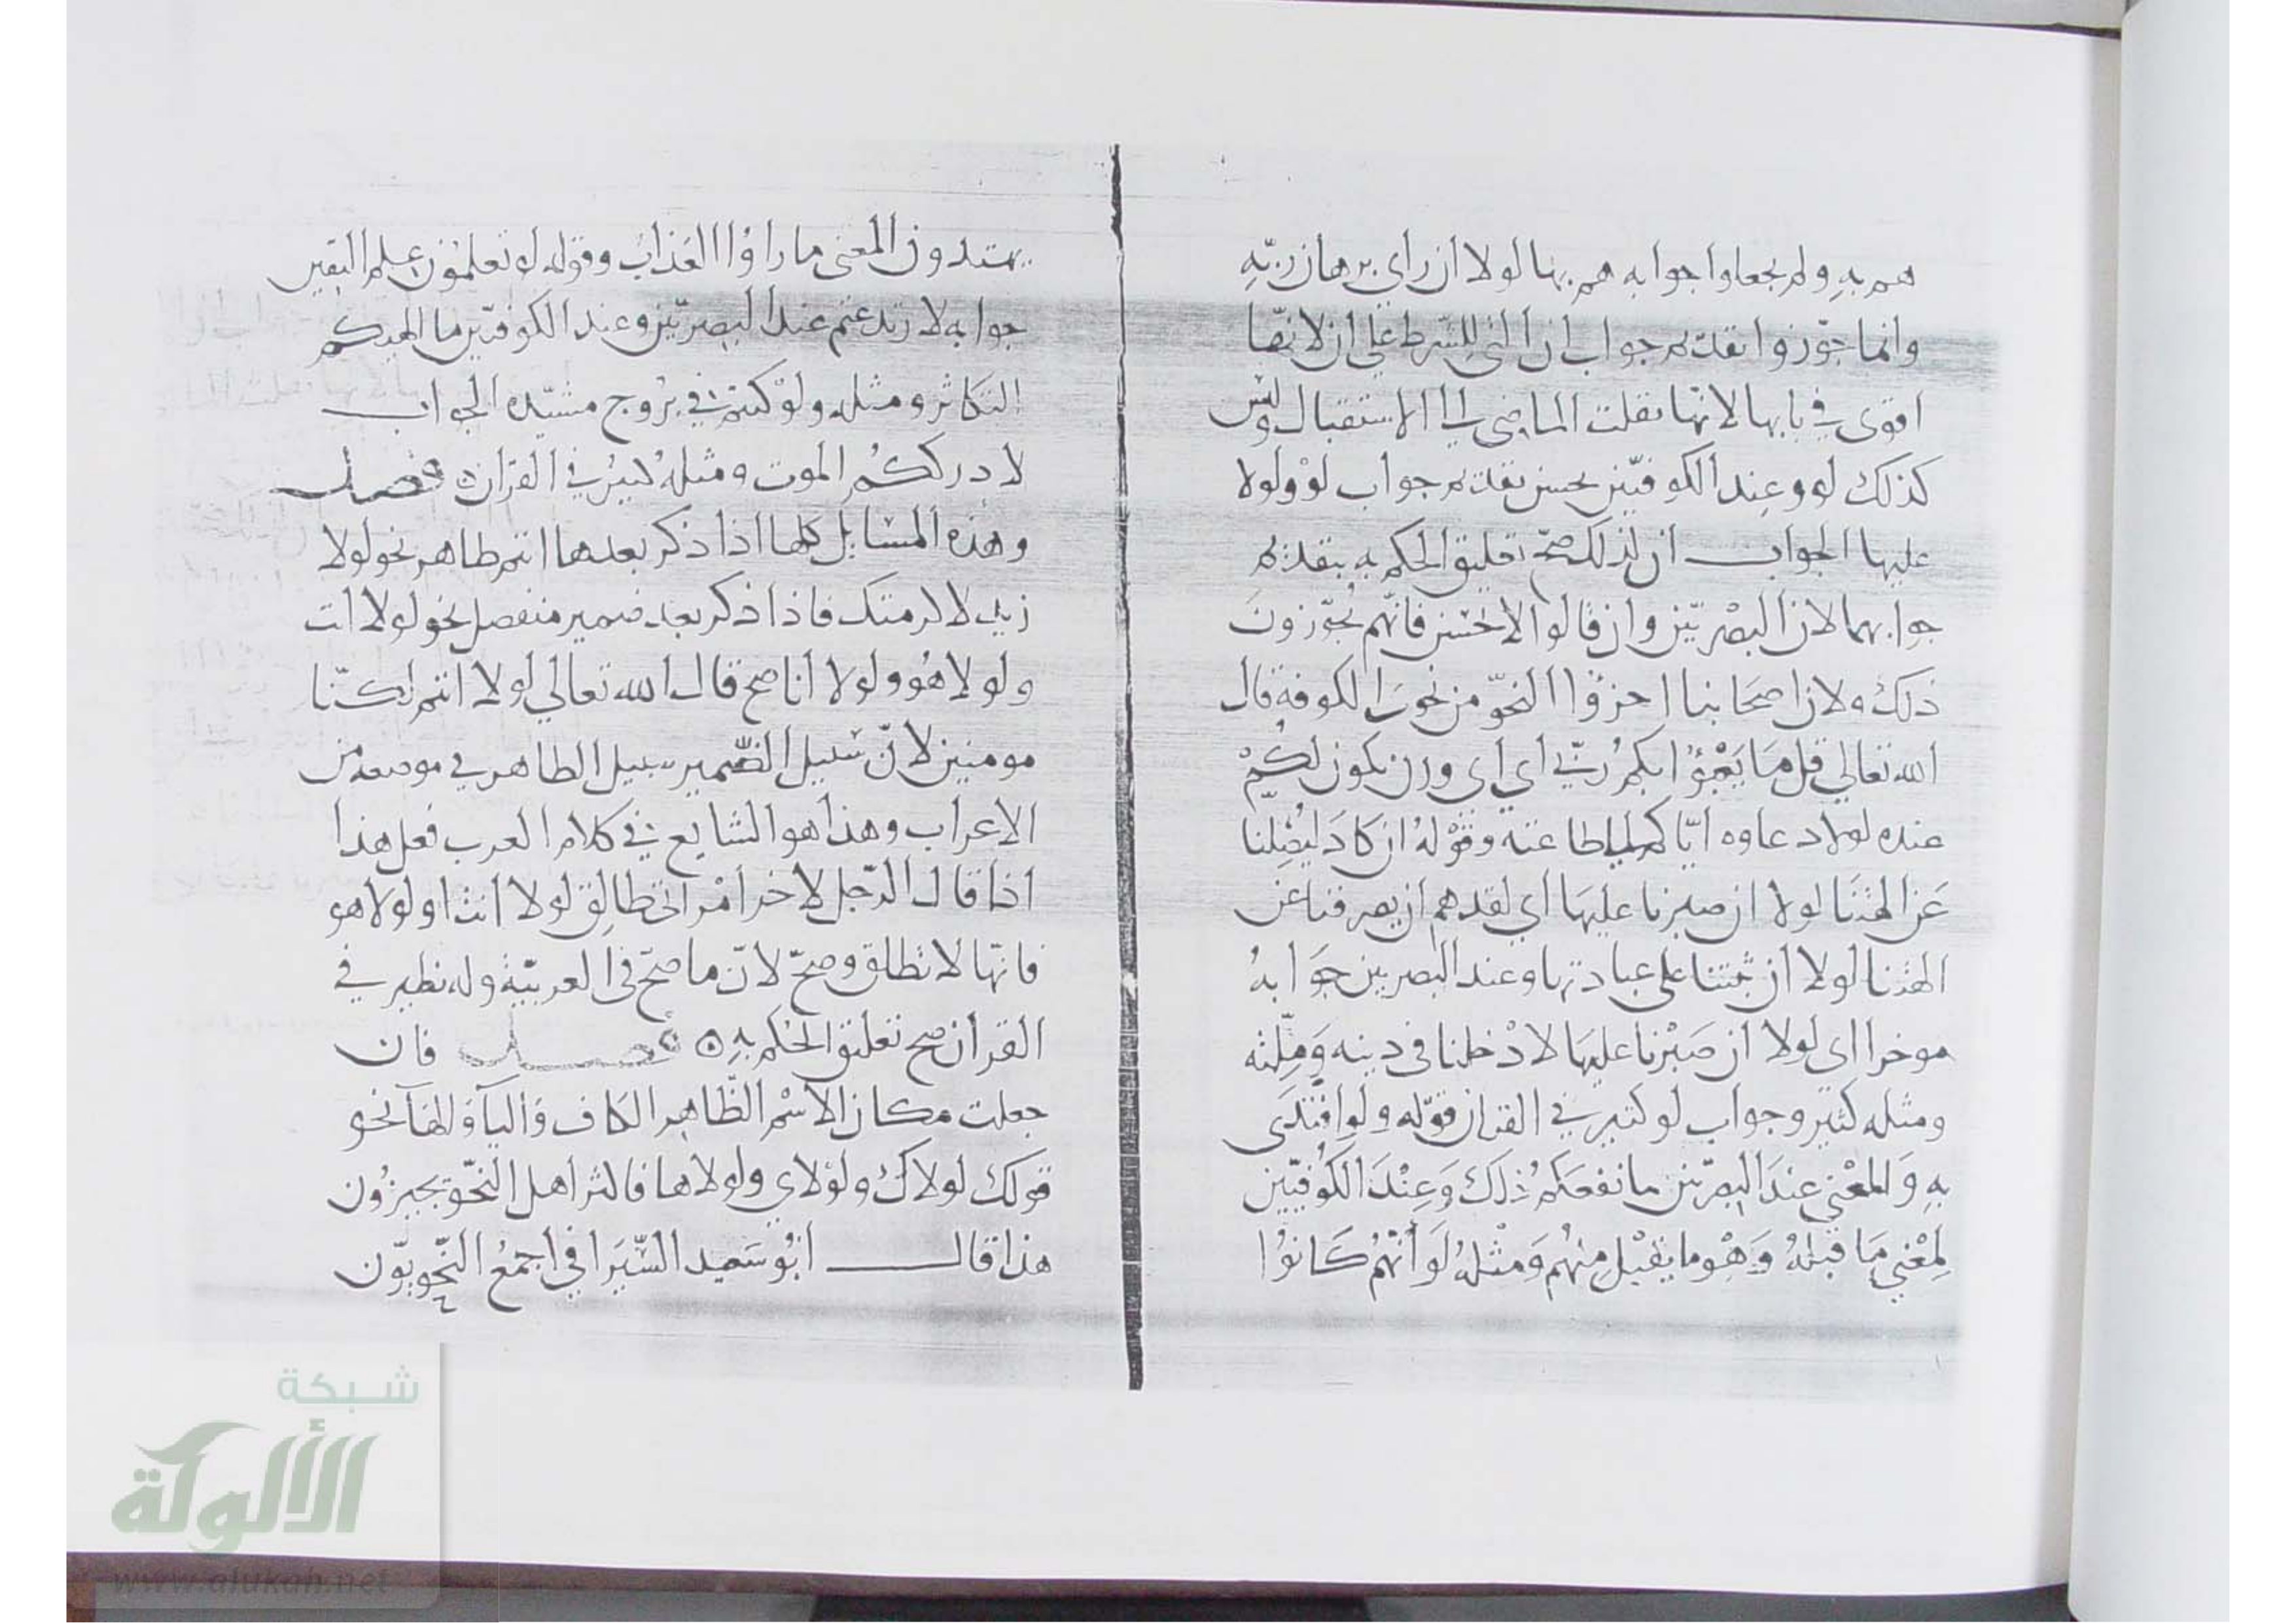 هم به ولم يجعلوا جوابه هم بها لولا أن رأى برهان ربّه
وانما جوّزوا تقدم جواب ان التي للشرط على ان لانّها
اقوى في بابها لانّها نقلت الماضي الى الاستقبال وليس
كذلك لو وعند الكوفيّين يحسن تقدم جواب لو ولولا
عليها الجواب ان لذلك صحّ تعليق الحكم به بتقدم
جوابهما لان البصريّين وان قالوا الاحسن فانّهم يجوّزون
ذلك ولان اصحابنا احذقوا النحو من نحو الكوفة قال
الله تعالى قل ما يعبؤا بكم ربّي أي أي وزن يكون لكم
عنده لولا دعاوه ايّاكم الى طاعته وقوله ان كاد ليضلنا
عن الهتنا لولا ان صبرنا عليها أي لقد هم ان يصرفنا عن
الهتنا لولا ان ثبتنا على عبادتها وعند البصريين جوابه
موخرا اى لولا ان صبرنا عليها لادخلنا في دينه وملّته
ومثله كثير وجواب لو كثير في القران قوله ولو افتدى
به والمعنى عند البصريّين ما نفعكم ذلك وعند الكوفيّين
لمعنى ما قبله وهو ما يقبل منهم ومثله لو أنّهم كانوا
يهتدون المعنى ما راوا العذاب وقوله لو تعلمون علم اليقين
جوابه لارتدعتم عند البصريّين وعند الكوفيّين ما الهيكم
التكاثر ومثله ولو كنتم في بروج مشيّده الجواب
لادرككم الموت ومثله كثير في القران ٥ فصل
وهذه المسايل كلها اذا ذكر بعدها اسم ظاهر نحو لولا
زيد لاكرمتك فاذا ذكر بعد ضمير منفصل نحو لولا انت
ولولا هو ولولا انا صح قال الله تعالى لولا انتم لكنّا
مومنين لانّ سبيل الضّمير سبيل الظاهر في موضعه من
الاعراب وهذا هو الشايع في كلام العرب فعلى هذا
اذا قال الرّجل لاخر امراتي طالق لولا انت او لولا هو
فانّها لا تطلق وصحّ لانّ ما صحّ في العربيّة وله نظير في
القران صح تعليق الحكم به ٥ فصل فان
جعلت مكان الاسم الظّاهر الكاف والياء والهاء نحو
قولك لولاك ولولاي ولولاها فاكثر اهل النّحو يجيزون
هذا قال ابو سعيد السّيرافي اجمع النّحويّون
شبكة
الألوكة
www.alukah.net